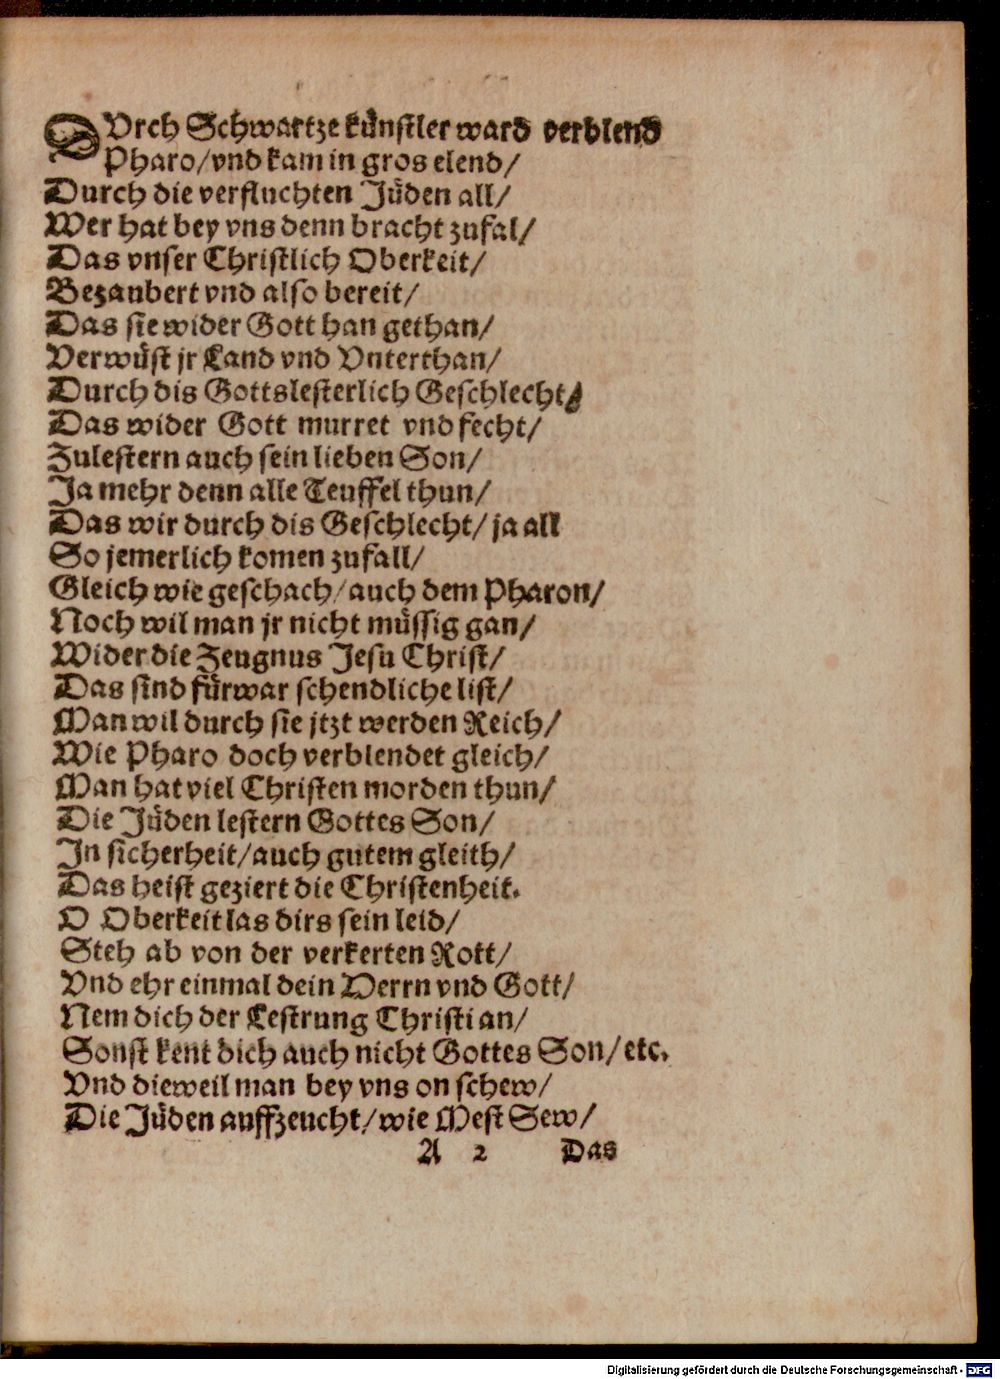 DVrch Schwartze kuͤnstler ward verblend
Pharo/vnd kam in gros elend/
Durch die verfluchten Juͤden all/
Wer hat bey vns denn bracht zufal/
Das vnser Christlich Oberkeit/
Bezaubert vnd also bereit/
Das sie wider Gott han gethan/
Verwuͤst jr Land vnd Vnterthan/
Durch dis Gottslesterlich Geschlecht/
Das wider Gott murret vnd fecht/
Zulestern auch sein lieben Son/
Ja mehr denn alle Teuffel thun/
Das wir durch dis Geschlecht/ ja all
So jemerlich komen zufall/
Gleich wie geschach/auch dem Pharon/
Noch wil man jr nicht muͤssig gan/
Wider die Zeugnus Jesu Christ/
Das sind fuͤrwar schendliche list/
Man wil durch sie jtzt werden Reich/
Wie Pharo doch verblendet gleich/
Man hat viel Christen morden thun/
Die Juͤden lestern Gottes Son/
In sicherheit/auch gutem gleith/
Das heist geziert die Christenheit.
O Oberkeit las dirs sein leid/
Steh ab von der verkerten Rott/
Vnd ehr einmal dein Herrn vnd Gott/
Nem dich der Lestrung Christi an/
Sonst kent dich auch nicht Gottes Son/etc.
Vnd dieweil man bey vns on schew/
Die Juͤden auffzeucht/wie Mest Sew/
A 2 Das
Digitalisierung gefördert durch die Deutsche Forschungsgemeinschaft - DFG